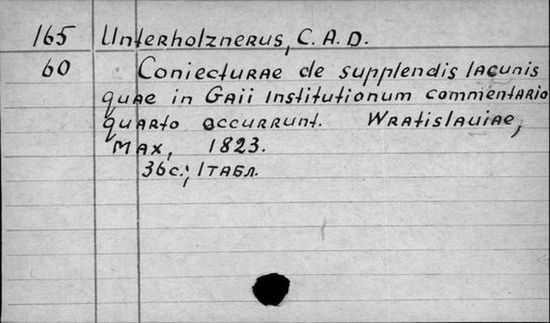 165 Unterholznerus, C. A. D.
60 Coniecturae de supplendis lacunis
quae in Gaii Institutionum commentario
quarto occurrunt. Wratislauiae,
Max, 1823.
36с.; 1 табл.